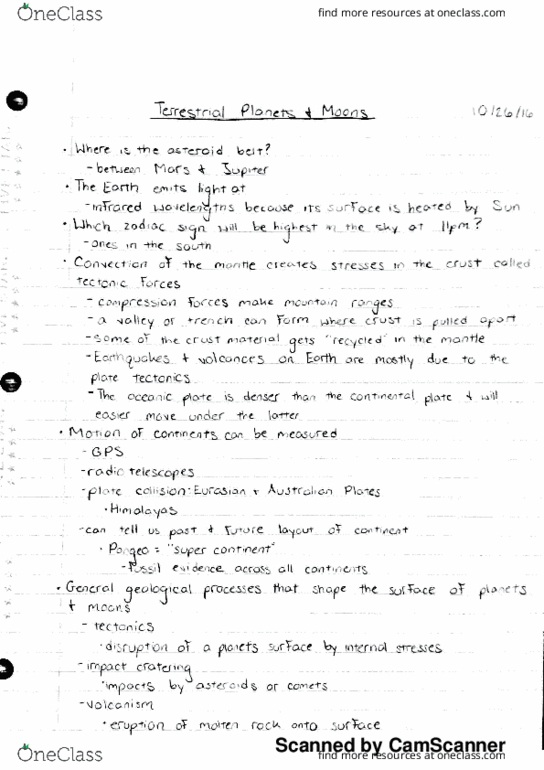 OneClass
find more resources at oneclass.com
Terrestrial Planets & Moons
10/26/16
• Where is the asteroid belt?
- between Mars & Jupiter
• The Earth emits light at
- infrared wavelengths because its surface is heated by Sun
• Which zodiac sign will be highest in the sky at 11pm?
- ones in the south
• Convection of the mantle creates stresses in the crust called
tectonic forces
- compression forces make mountain ranges
- a valley or trench can form where crust is pulled apart
- some of the crust material gets "recycled" in the mantle
- Earthquakes & volcanoes on Earth are mostly due to the
plate tectonics
- The oceanic plate is denser than the continental plate & will
easier move under the latter
• Motion of continents can be measured
- GPS
- radio telescopes
- plate collision: Eurasian & Australian Plates
• Himalayas
- can tell us past & future layout of continent
• Pangea = "super continent"
- fossil evidence across all continents
• General geological processes that shape the surface of planets
& moons
- tectonics
• disruption of a planets surface by internal stresses
- impact cratering
• impacts by asteroids or comets
- volcanism
• eruption of molten rock onto surface
Scanned by CamScanner
OneClass
find more resources at oneclass.com